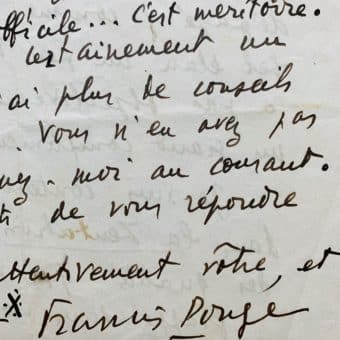 fficile... c'est méritoire.
certainement un
'ai plus de conseils
vous n'en avez pas
ez-moi au courant.
de vous répondre
ttentivement vôtre, et
Francis Ponge